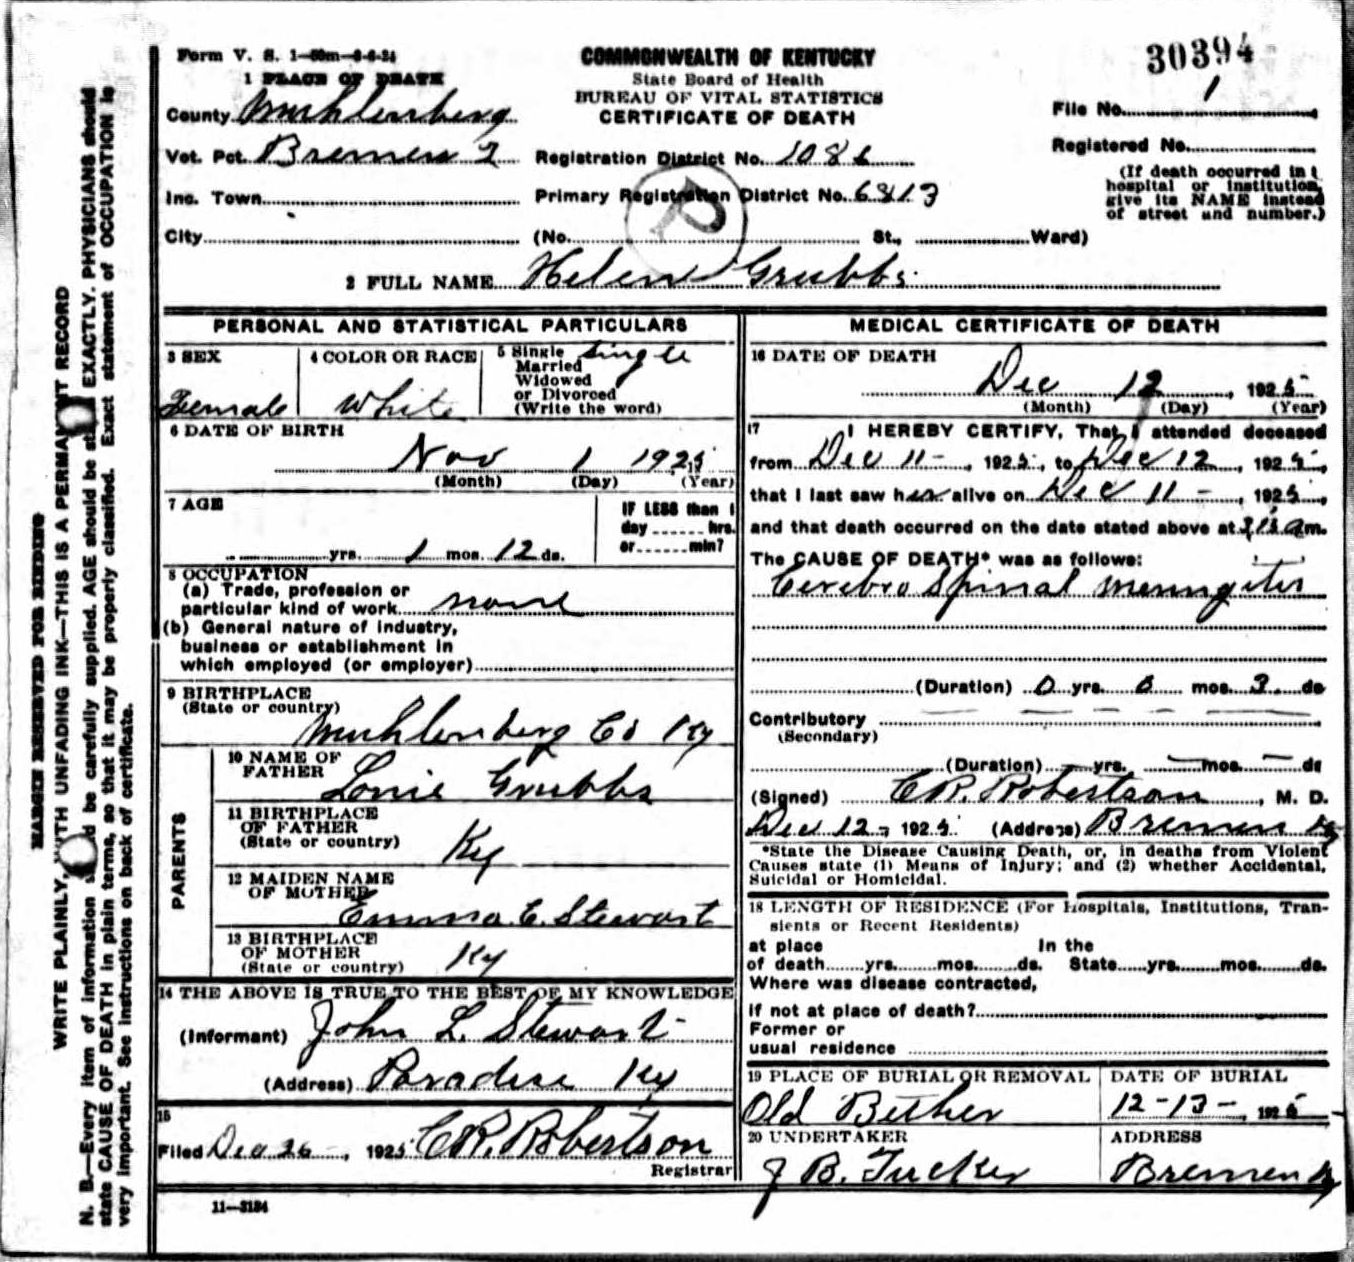 30394
Form V. S. 1-50m-6-6-24
COMMONWEALTH OF KENTUCKY
State Board of Health
BUREAU OF VITAL STATISTICS
CERTIFICATE OF DEATH
1 PLACE OF DEATH
County Muhlenberg
File No. 1
Vot. Pct. Bremen 2 Registration District No. 1086
Registered No.
Inc. Town Primary Registration District No. 6813
(If death occurred in a
hospital or institution,
give its NAME instead
of street and number.)
City (No. St., Ward)
P
2 FULL NAME Helen Grubbs
PERSONAL AND STATISTICAL PARTICULARS
3 SEX
Female
4 COLOR OR RACE
White
5 Single
Married
Widowed
or Divorced
(Write the word)
Single
6 DATE OF BIRTH
Nov 1 1925
(Month) (Day) (Year)
7 AGE
yrs. 1 mos. 12 ds.
IF LESS than 1
day hrs.
or min?
8 OCCUPATION
(a) Trade, profession or
particular kind of work none
(b) General nature of industry,
business or establishment in
which employed (or employer)
9 BIRTHPLACE
(State or country)
Muhlenberg Co Ky
PARENTS
10 NAME OF
FATHER
Lonie Grubbs
11 BIRTHPLACE
OF FATHER
(State or country)
Ky
12 MAIDEN NAME
OF MOTHER
Emma C. Stewart
13 BIRTHPLACE
OF MOTHER
(State or country)
Ky
14 THE ABOVE IS TRUE TO THE BEST OF MY KNOWLEDGE
(Informant) John L. Stewart
(Address) Paradise Ky
15
Filed Dec 26, 1925 C.R. Robertson
Registrar
11-3184
MEDICAL CERTIFICATE OF DEATH
16 DATE OF DEATH
Dec 12, 1925
(Month) (Day) (Year)
17 I HEREBY CERTIFY, That I attended deceased
from Dec 11, 1925, to Dec 12, 1925,
that I last saw her alive on Dec 11, 1925,
and that death occurred on the date stated above at m.
The CAUSE OF DEATH* was as follows:
Cerebro Spinal Meningitis
(Duration) 0 yrs. 0 mos. 3 ds
Contributory
(Secondary)
(Duration) yrs. mos. ds
(Signed) C.R. Robertson, M. D.
Dec 12, 1925 (Address) Bremen Ky
*State the Disease Causing Death, or, in deaths from Violent
Causes state (1) Means of Injury; and (2) whether Accidental,
Suicidal or Homicidal.
18 LENGTH OF RESIDENCE (For Hospitals, Institutions, Tran-
sients or Recent Residents)
at place In the
of death yrs. mos. ds. State yrs. mos. ds.
Where was disease contracted,
If not at place of death?
Former or
usual residence
19 PLACE OF BURIAL OR REMOVAL
Old Bethel
DATE OF BURIAL
12-13-, 1925
20 UNDERTAKER
J B. Tucker
ADDRESS
Bremen Ky
MARGIN RESERVED FOR BINDING
WRITE PLAINLY, WITH UNFADING INK—THIS IS A PERMANENT RECORD
N. B.—Every item of information should be carefully supplied. AGE should be stated EXACTLY. PHYSICIANS should
state CAUSE OF DEATH in plain terms, so that it may be properly classified. Exact statement of OCCUPATION is
very important. See instructions on back of certificate.